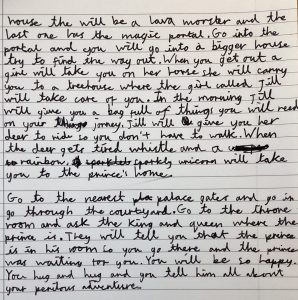 house the will be a lava monster and the
last one has the magic portal. Go into the
portal and you will go into a bigger house
try to find the way out. When you get out a
girl will take you on her horse she will carry
you to a treehouse where the girl called Jill
will take care of you. In the morning Jill
will give you a bag full of things you will need
on your jorney. Jill will give you her
deer to ride so you don't have to walk. When
the deer gets tired whistle and a
rainbow. sparkely unicorn will take
you to the prince's home.
Go to the nearest palace gates and go in
go through the courtyard. Go to the throne
room and ask the king and queen where the
prince is. They will tell you that the prince
is in his room so you go there and the prince
was waiting for you. You will be so happy.
You hug and hug and you tell him all about
your perilous adventure.